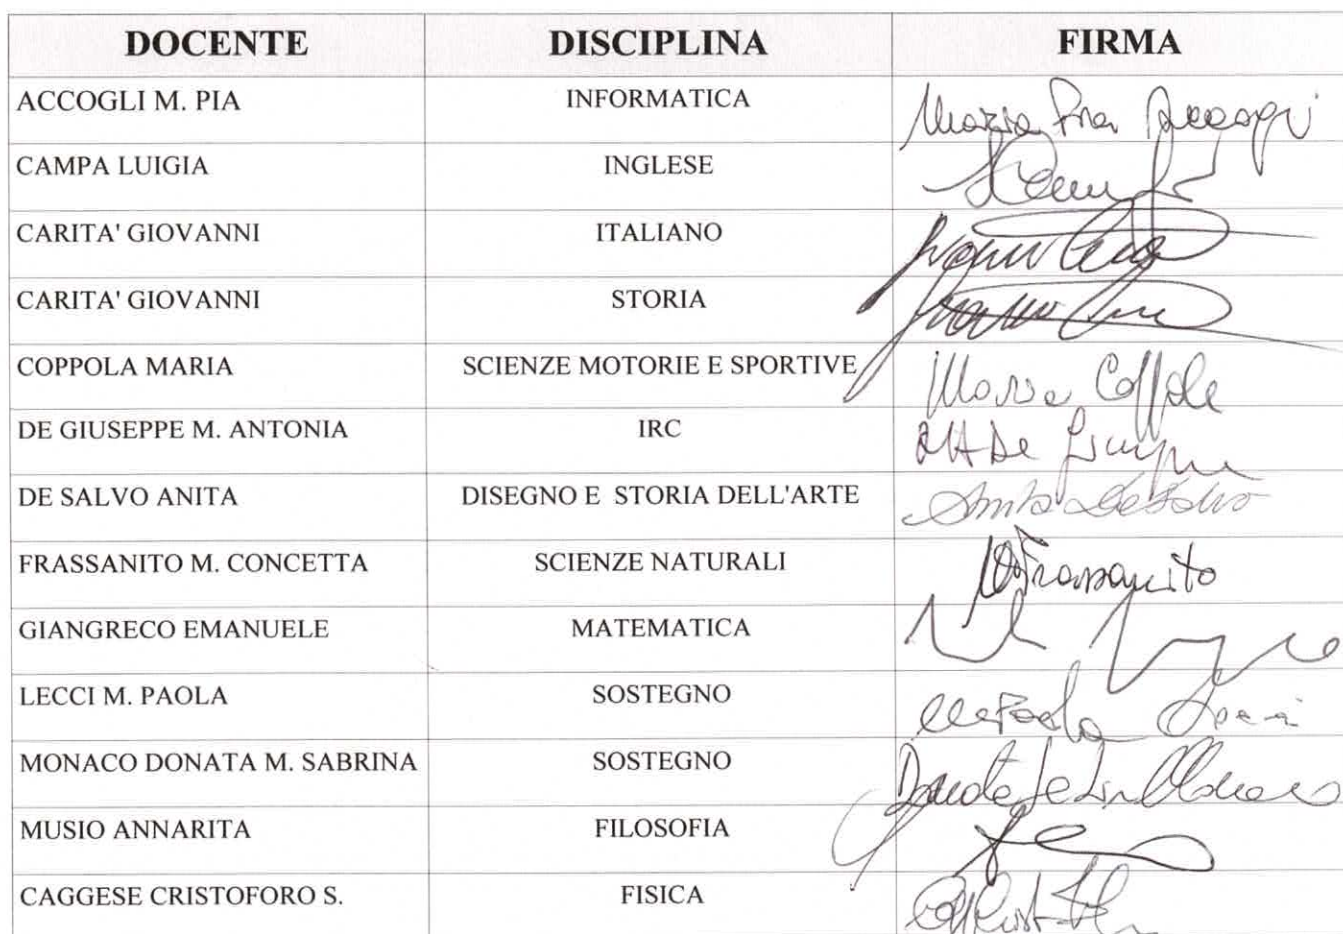 DOCENTE DISCIPLINA FIRMA
ACCOGLI M. PIA INFORMATICA Maria Pia Accogli
CAMPA LUIGIA INGLESE
CARITA' GIOVANNI ITALIANO
CARITA' GIOVANNI STORIA
COPPOLA MARIA SCIENZE MOTORIE E SPORTIVE Maria Coppola
DE GIUSEPPE M. ANTONIA IRC
DE SALVO ANITA DISEGNO E STORIA DELL'ARTE Anita De Salvo
FRASSANITO M. CONCETTA SCIENZE NATURALI Frassanito
GIANGRECO EMANUELE MATEMATICA
LECCI M. PAOLA SOSTEGNO
MONACO DONATA M. SABRINA SOSTEGNO
MUSIO ANNARITA FILOSOFIA
CAGGESE CRISTOFORO S. FISICA